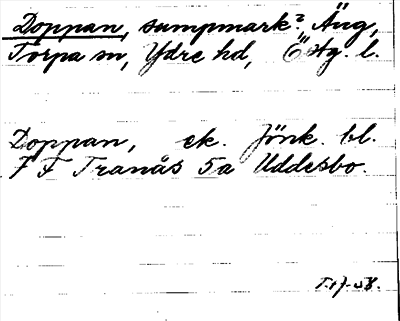 Doppan, sumpmark?, Äng,
Torpa sn, Ydre hd, Östg. l.
Doppan, ek. Jönk. bl.
7 F Tranås 5a Uddesbo.